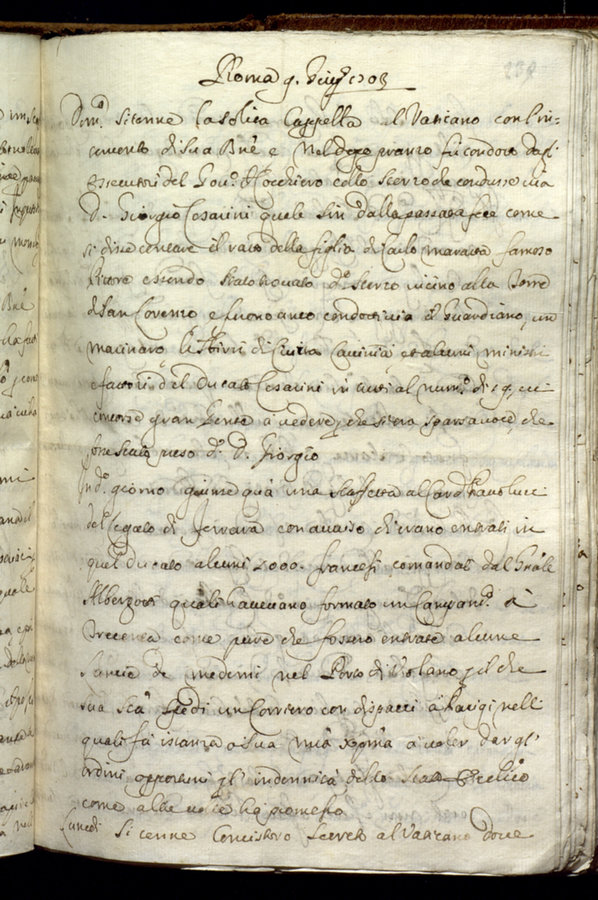 Roma 9. Giug.o 1703
Dom.ca si tenne la solita Cappella al Vaticano con l'in-
cemento di Sua Bne e nel dopo pranzo fù condotto dagl'
Essecutori del Gov.e il Cocchiero colto sterzo che condusse via
D. Giorgio Cesarini quale sin dalla passata fece come
si disse tentare il ratto della figlia di Carlo Maratta famoso
Pittore essendo stato trovato d.o sterzo vicino alla Torre
di San Lorenzo e furono anco condotti via il Guardiano, un
macinaro, li sbirri di Civita Lavinia, et alcuni ministri
e fattori del Ducato Cesarini in tutti al num.o di 19, vi
concorse gran gente à vedere, che si era sparsa voce, che
fosse stato preso d.o D. Giorgio
In d.o giorno giunse quà una staffetta al Card. Paolucci
del legato di Ferrara con avviso ch'erano entrati in
quel Ducato alcuni 2000. francesi comandati dal Gnãle
Albergotti quali havevano formato un Campam.to à
Trecenta come pure che fossero entrate alcune
de medemi nel Porto di Volano, il che
sua Stà spedì un Corriero con dispacci à Parigi nell
quali fà istanza à Sua Mtà Xpma à voler dar gl'
ordini opportuni gl' indennità dello Stato Eccl.ico
come alle volte hà promesso
Lunedì si tenne Concistoro secreto al Vaticano dove